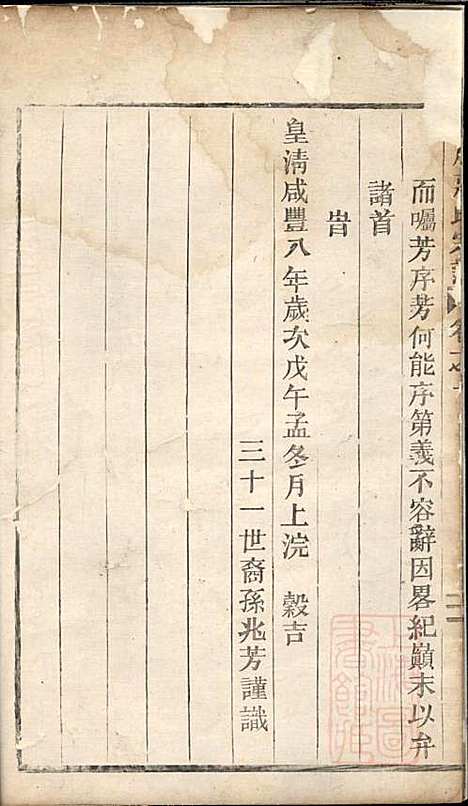 而囑芳序芳何能序第義不容辭因畧紀巔末以弁
諸首
旹
皇清咸豐八年歲次戊午孟冬月上浣　穀吉
三十一世裔孫兆芳謹識